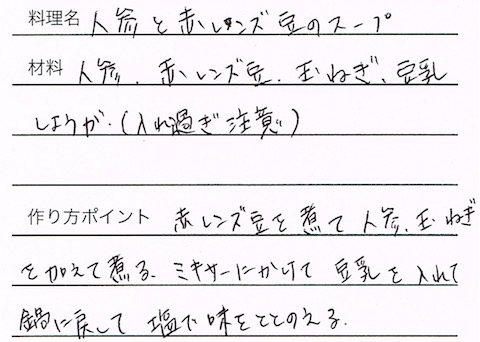 料理名 人参と赤レンズ豆のスープ
材料 人参、赤レンズ豆、玉ねぎ、豆乳
しょうが、(入れ過ぎ注意)
作り方ポイント 赤レンズ豆を煮て人参、玉ねぎ
を加えて煮る、ミキサーにかけて豆乳を入れて
鍋に戻して塩で味をととのえる、